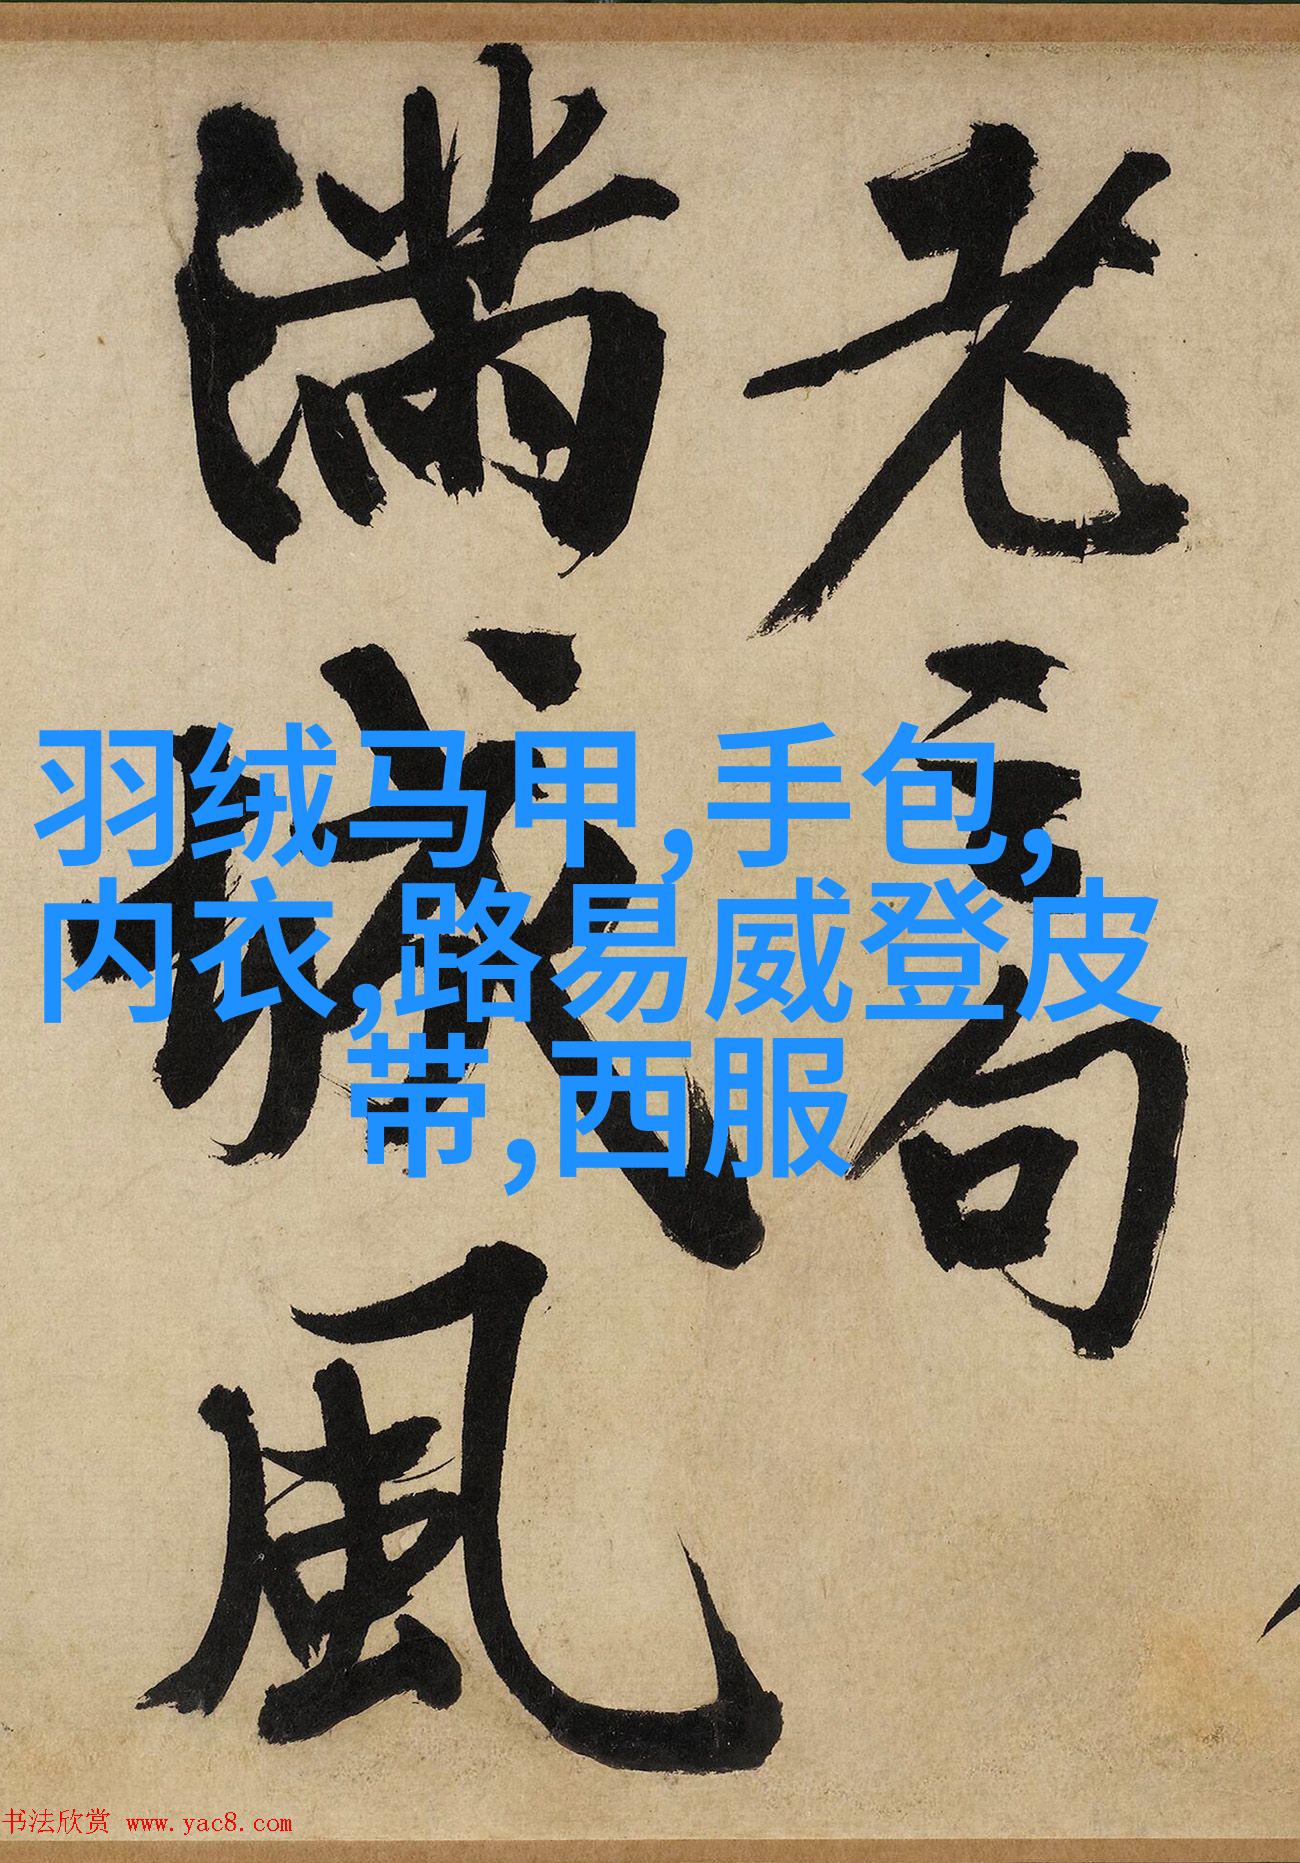 老句
滿城風
羽绒马甲,手包,
内衣,路易威登皮
带,西服
书法欣赏 www.yac8.com